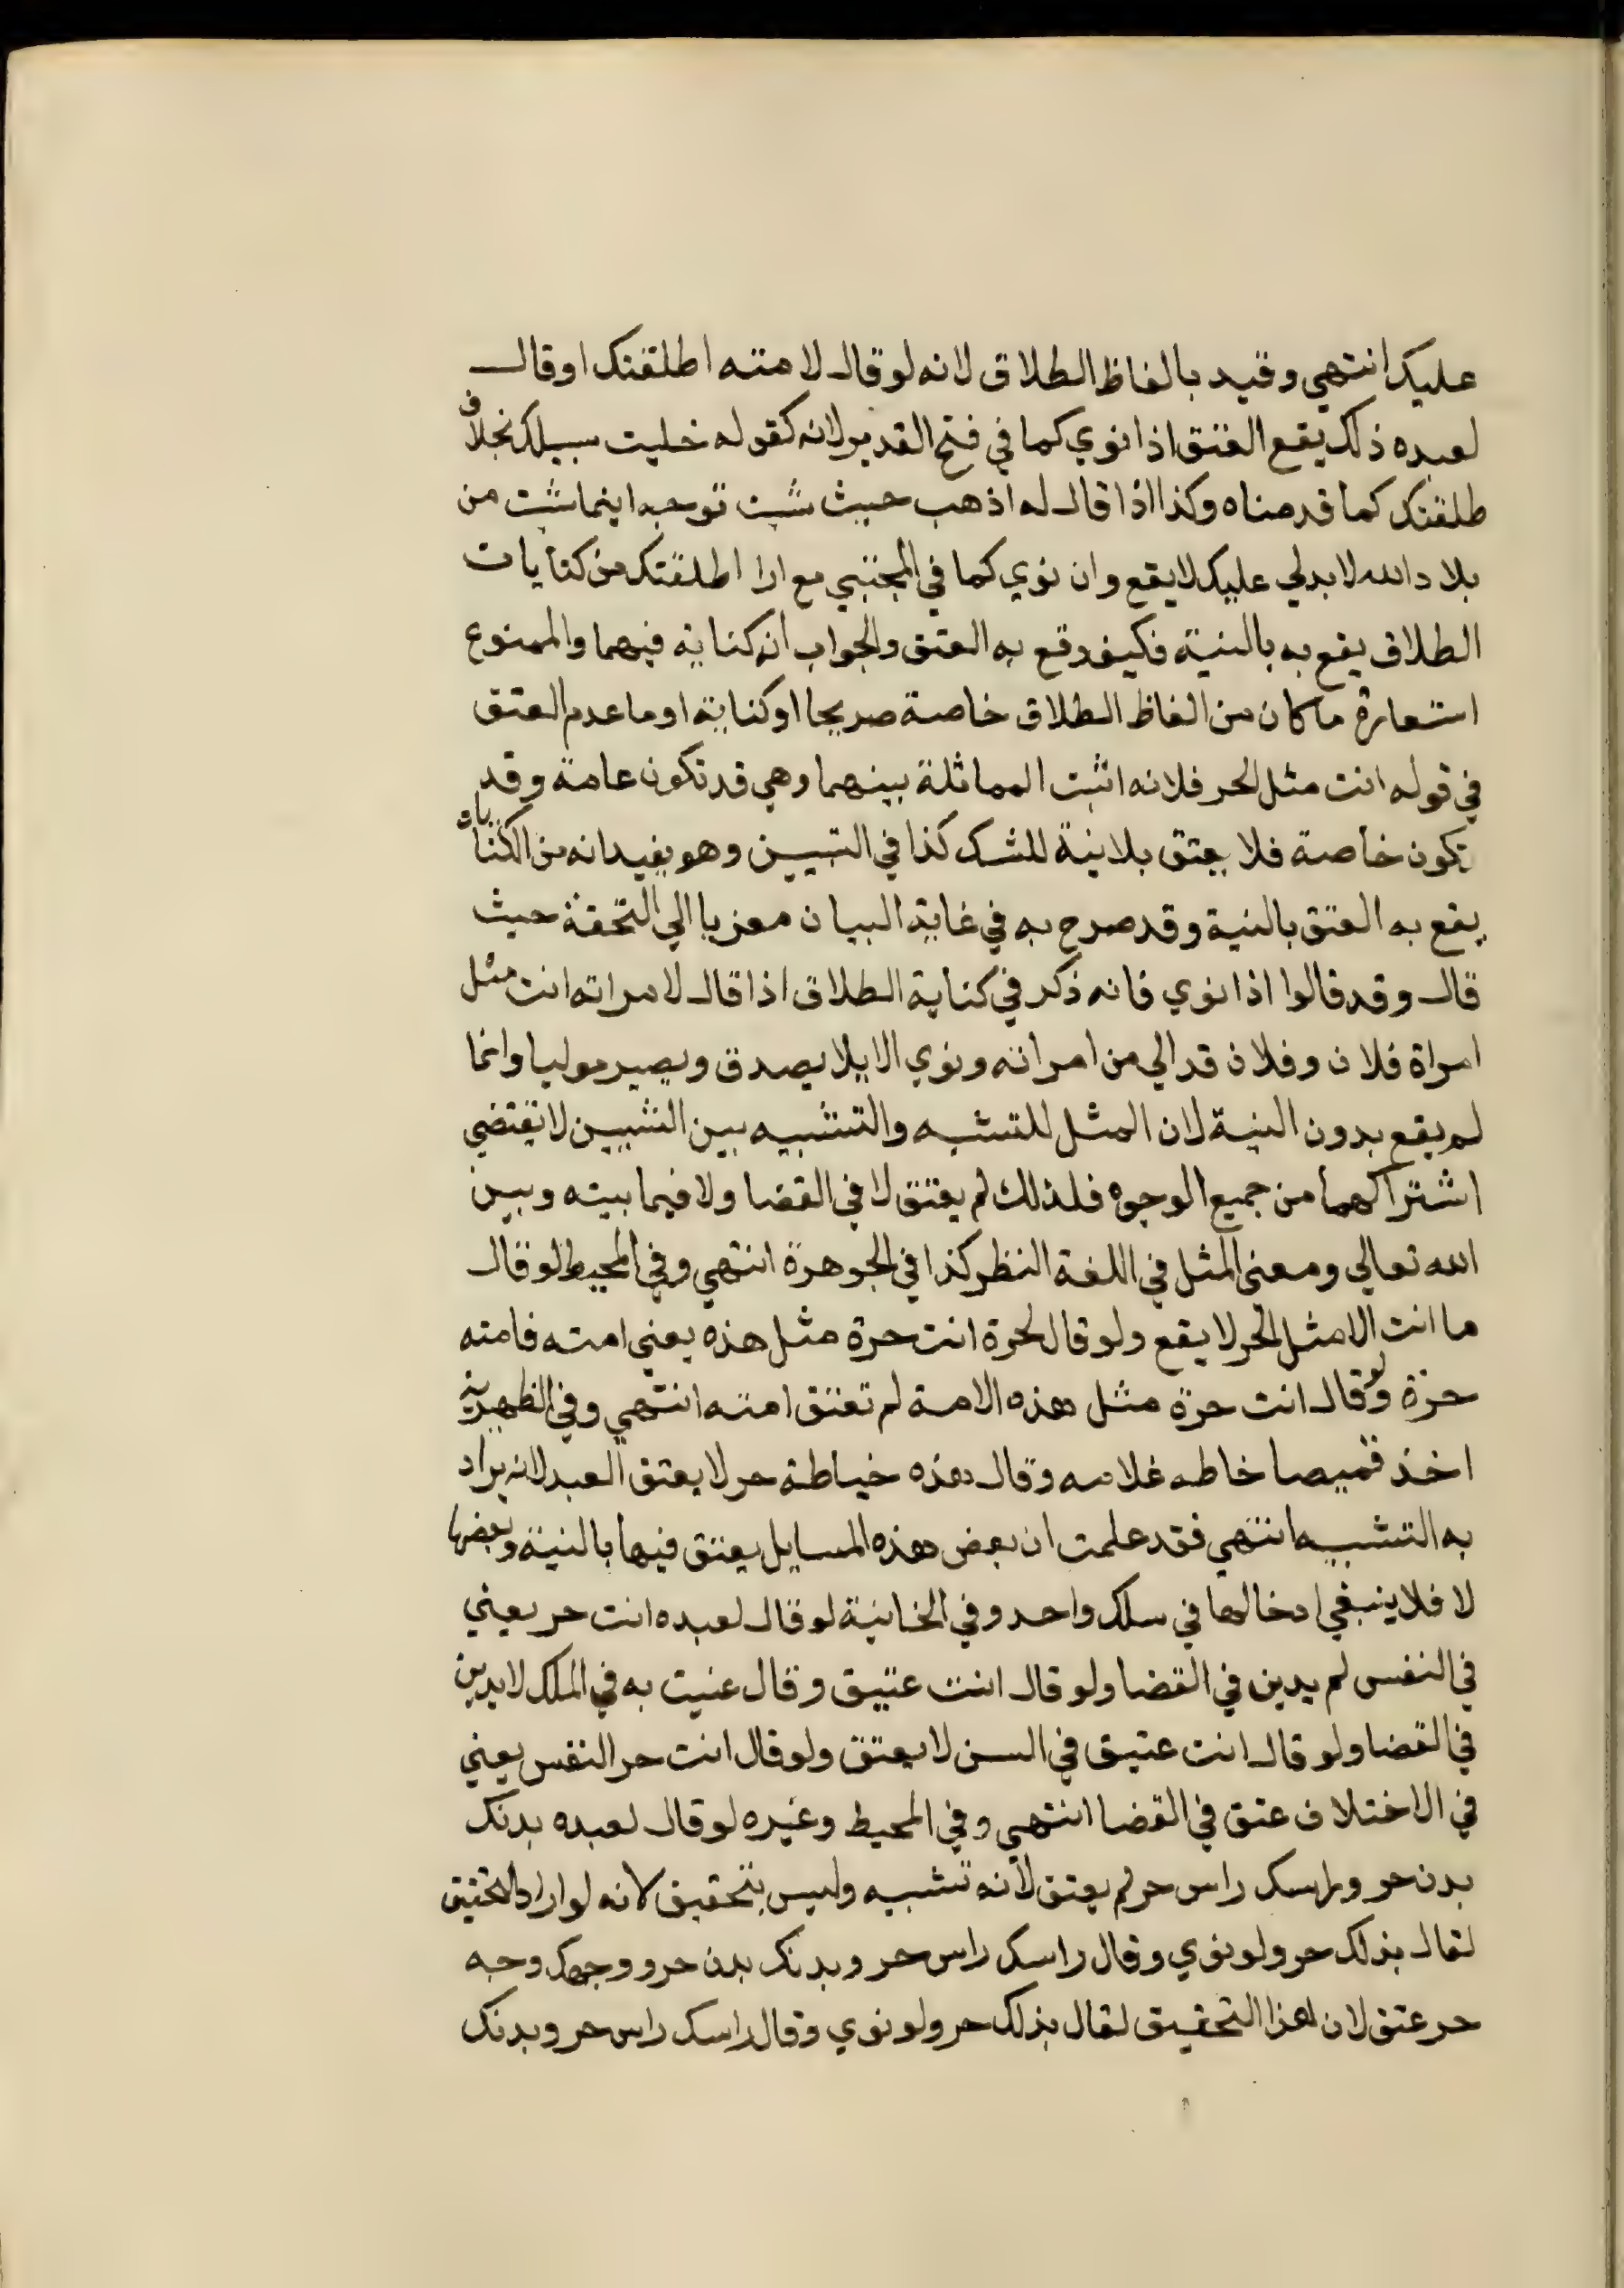 عليك انتهي وقيد بالفاظ الطلاق لانه لو قال لامته اطلقتك او قال
لعبده ذلك يقع العتق اذا نوي كما في فتح القدير لانه كقوله خليت سبيلك بخلاف
طلقتك كما قدمناه وكذا اذا قال له اذهب حيث شئت توجه اينما شئت من
بلاد الله لا يد لي عليك لا يقع وان نوي كما في المجتبي مع ان اطلقتك من كنايات
الطلاق يقع به بالنية فكيف وقع به العتق والجواب انه كناية فيهما والممنوع
استعارة ما كان من الفاظ الطلاق خاصة صريحا او كناية اوما عدم العتق
في قوله انت مثل الحر فلانه اثبت المماثلة بينهما وهي قد تكون عامة وقد
تكون خاصة فلا يعتق بلا نية للشك كذا في التبيين وهو يفيد انه من الكنايات
يقع به العتق بالنية وقد صرح به في غاية البيان معزيا الي التحفة حيث
قال وقد قالوا اذا نوي فانه ذكر في كناية الطلاق اذا قال لامراته انت مثل
امراة فلان وفلان قد الي من امراته ونوي الايلا يصدق ويصير موليا وانما
لم يقع بدون النية لان المثل للتشبيه والتشبيه بين الشيين لا يقتضي
اشتراكهما من جميع الوجوه فلذلك لم يعتق لا في القضا ولا فيما بينه وبين
الله تعالي ومعنى المثل في اللغة النظر كذا في الجوهرة انتهي وفي المحيط لو قال
ما انت الا مثل الحر لا يقع ولو قال لحرة انت حرة مثل هذه يعني امته فامته
حرة ولو قال انت حرة مثل هذه الامة لم تعتق امته انتهي وفي الظهيرية
اخذ قميصا خاطه غلامه وقال هذه خياطة حر لا يعتق العبد لانه يراد
به التشبيه انتهي فقد علمت ان بعض هذه المسايل يعتق فيها بالنية وبعضها
لا فلا ينبغي ادخالها في سلك واحد وفي الخانية لو قال لعبده انت حر يعني
في النفس لم يدين في القضا ولو قال انت عتيق وقال عنيت به في الملك لا يدين
في القضا ولو قال انت عتيق في السن لا يعتق ولو قال انت حر النفس يعني
في الاختلاف عتق في القضا انتهي وفي المحيط وغيره لو قال لعبده بدنك
بدن حر وراسك راس حر لم يعتق لانه تشبيه وليس بتحقيق لانه لو اراد التحقيق
لقال بذلك حر ولو نوي وقال راسك راس حر وبدنك بدن حر ووجهك وجه
حر عتق لان هذا التحقيق لقال بذلك حر ولو نوي وقال راسك راس حر وبدنك